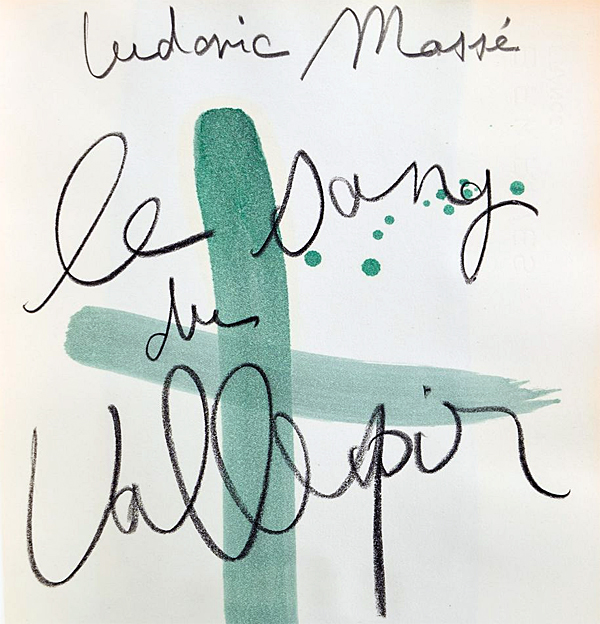 Ludovic Massé
le sang
du
Vallespir